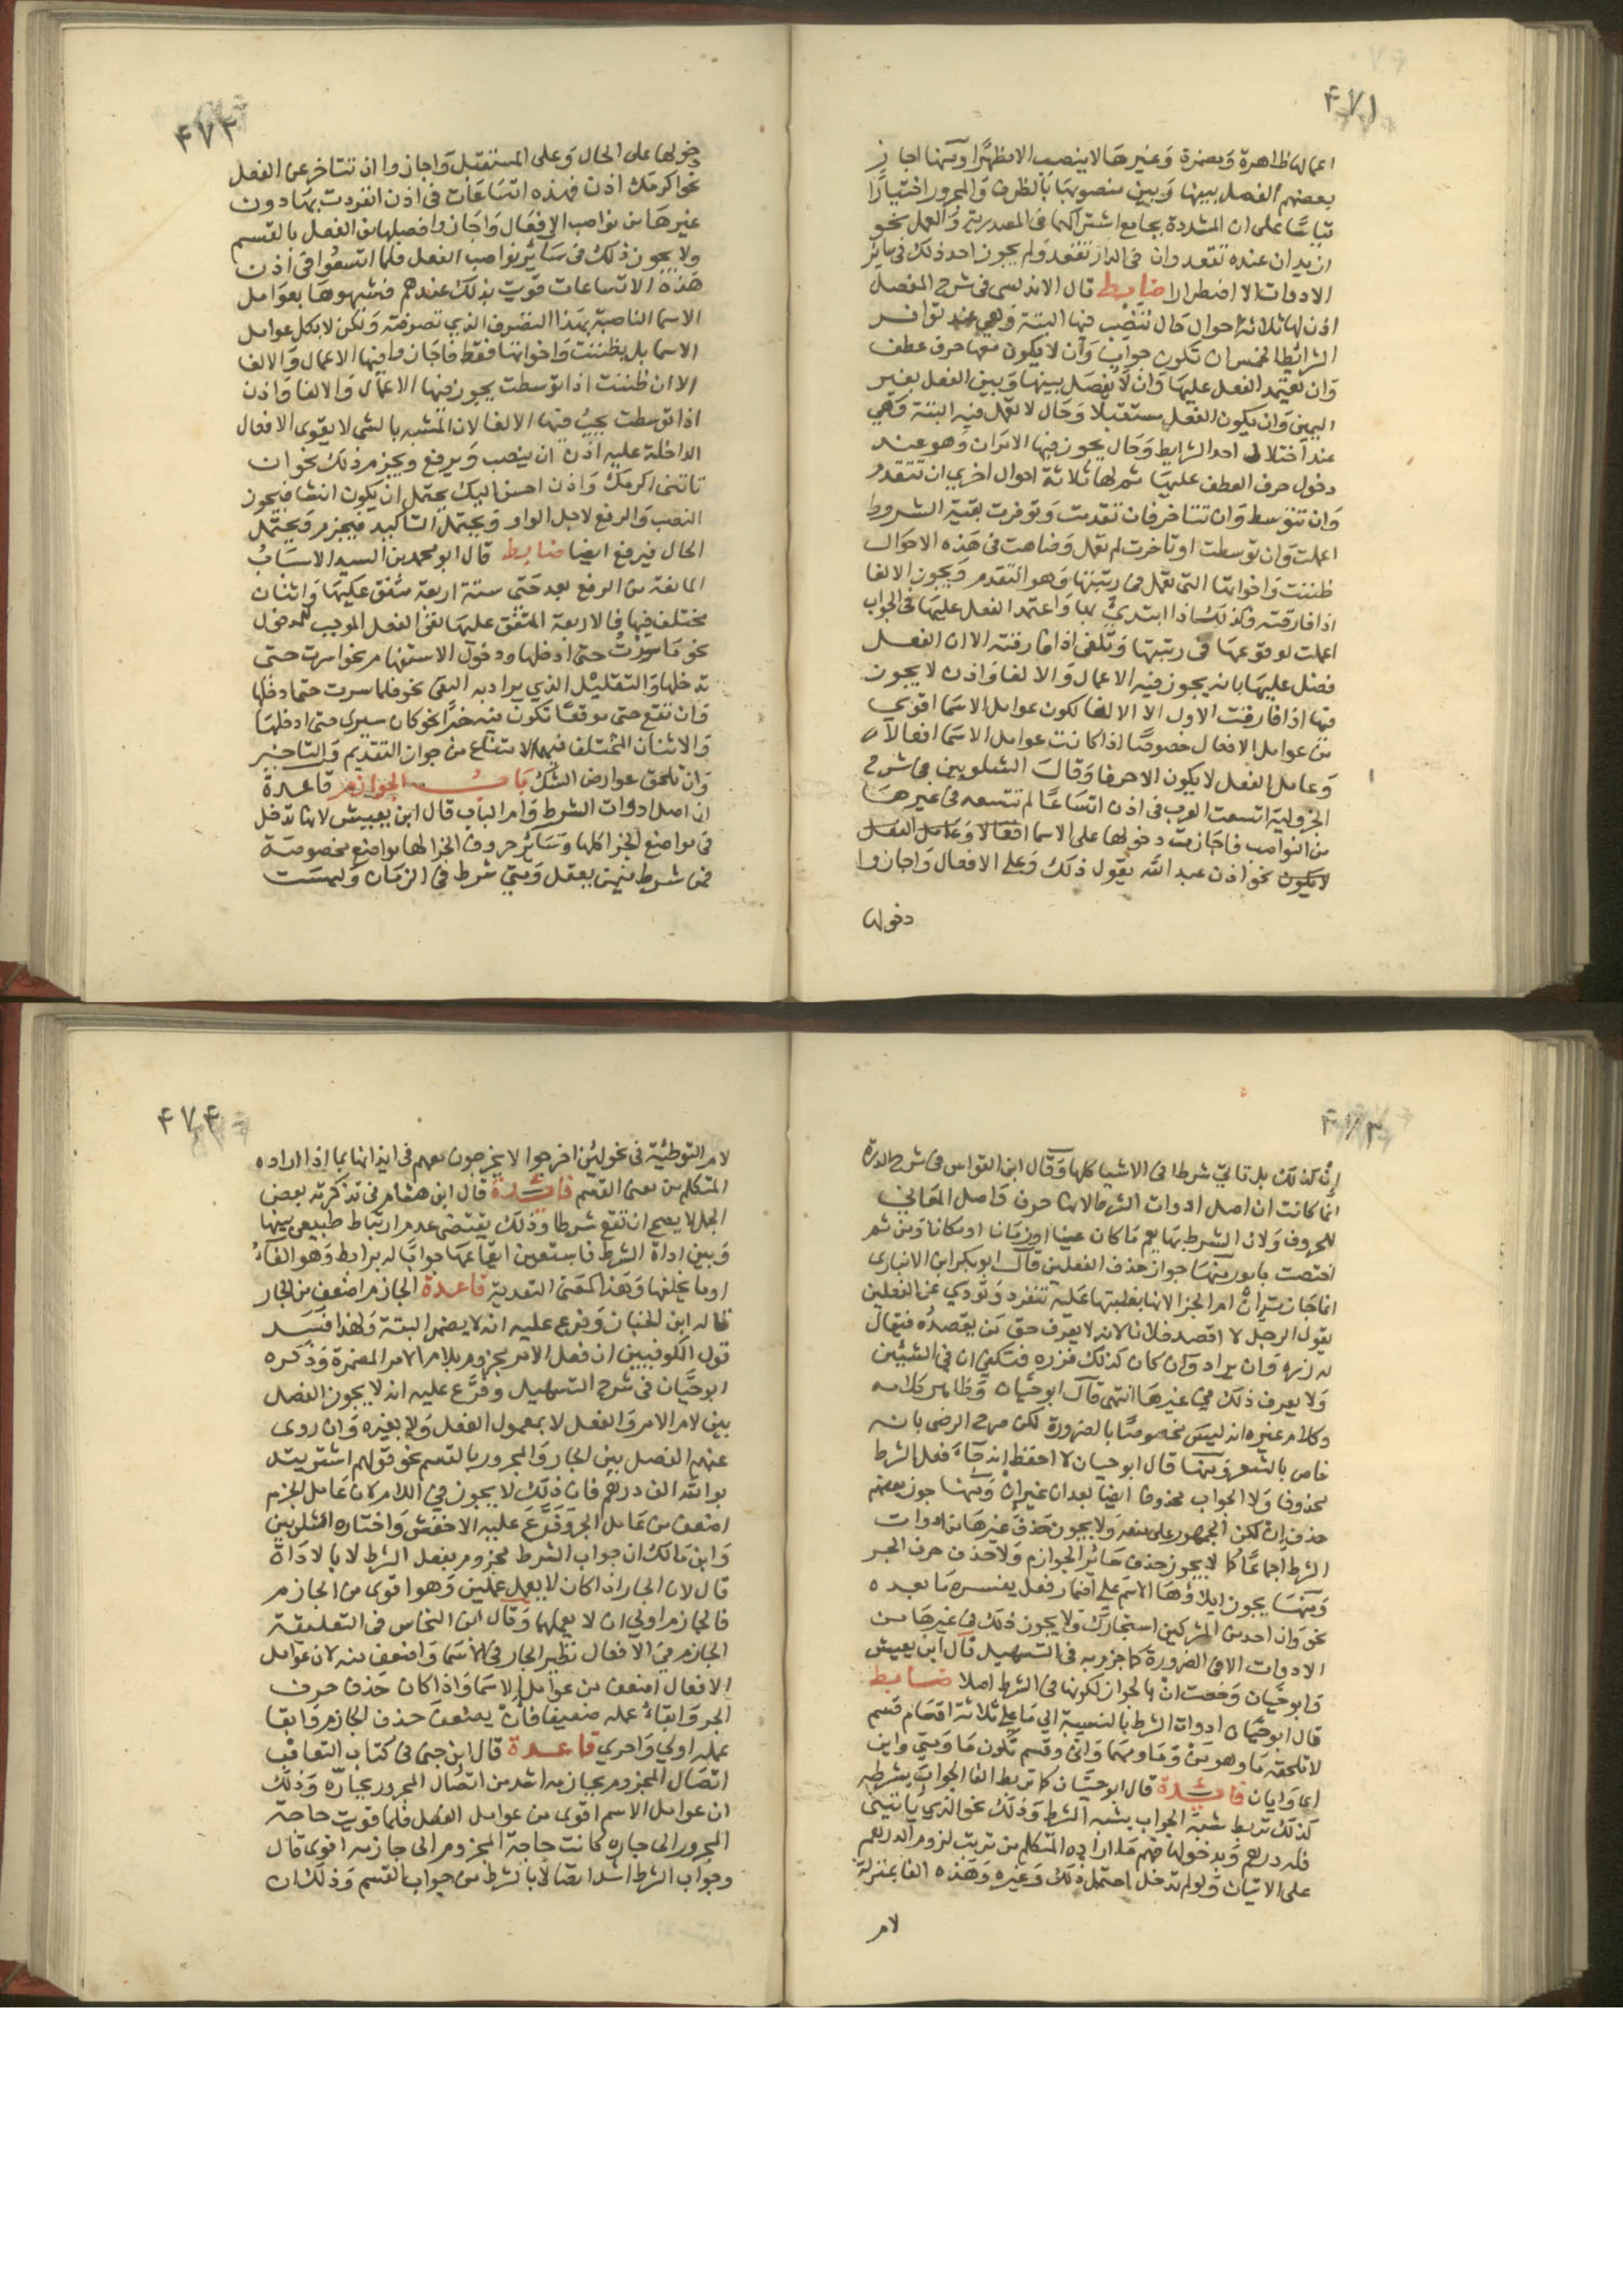 ۴۷۱
اعمالها ظاهرة ومضمرة وغيرها لا ينصب الا مظهرا ومنها اجاز
بعضهم الفصل بينها وبين منصوبها بالظرف والمجرور اختيارا
قياسا على ان المشددة بجامع اشتراكهما فى المصدرية والعمل نحو
اريد ان عندى تقعد وان فى الدار تقعد ولم يجوز احد ذلك فى سائر
الادوات الا اضطرارا ضابط قال الاندلسى فى شرح المفصل
اذن لها ثلاثة احوال حال تنصب فيها البتة وهي عند توافر
الشرائط الخمس ان تكون جوابا وان لا يكون معها حرف عطف
وان يعتمد الفعل عليها وان لا يفصل بينها وبين الفعل بغير
اليمين وان يكون الفعل مستقبلا وحال لا تعمل فيه البتة وهي
عند اختلال احد الشرايط وحال يجوز فيها الامران وهو عند
دخول حرف العطف عليها ثم لها ثلاثة احوال اخرى ان تتقدم
وان تتوسط وان تتاخر فان تقدمت وتوفرت بقية الشروط
اعملت وان توسطت او تاخرت لم تعمل وضاهت فى هذه الاحوال
ظننت واخواتها التى تعمل فى رتبتها وهو التقدم ويجوز الالغا
اذا فارقته وكذلك اذا ابتدئ بها واعتمد الفعل عليها فى الجواب
اعملت لوقوعها فى رتبتها وتلغى اذا فارقته الا ان الفعل
فضل عليها بانه يجوز فيه الاعمال والالغا واذن لا يجوز
فيها اذا فارقت الاول الا الالغا لكون عوامل الاسما اقوى
من عوامل الافعال خصوصا اذا كانت عوامل الاسما افعالا
وعامل الفعل لا يكون الا حرفا وقال الشلوبين فى شرح
الجزولية اتسعت العرب فى اذن اتساعا لم تتسعه فى غيرها
من النواصب فاجازت دخولها على الاسما افعالا وعامل الفعل
لا يكون نحو اذن عبد الله يقول ذلك وعلى الافعال واجازوا
دخولها
۴۷۲
دخولها على الحال وعلى المستقبل واجازوا ان تتاخر عن الفعل
نحو اكرمك اذن فهذه اتساعات فى اذن انفردت بها دون
غيرها من نواصب الافعال واجازوا فصلها من الفعل بالقسم
ولا يجوز ذلك فى سائر نواصب الفعل فلما اتسعوا فى اذن
هذه الاتساعات قويت بذلك عندهم فشبهوها بعوامل
الاسما الناصبة بهذا التصرف الذي تصرفته ولكن لا بكل عوامل
الاسما بل بظننت واخواتها فقط فاجازوا فيها الاعمال والالغا
الا ان ظننت اذا توسطت يجوز فيها الاعمال والالغا واذن
اذا توسطت يجب فيها الالغا لان المشبه بالشى لا يقوى الافعال
الداخلة عليه اذن ان ينصب ويرفع ويجزم وذلك نحو ان
تاتنى اكرمك واذن احسن اليك يحتمل ان يكون انشا فيجوز
النصب والرفع لاجل الواو ويحتمل التاكيد فيجزم ويحتمل
الحال فيرفع ايضا ضابط قال ابو محمد بن السيد الاسباب
المانعة من الرفع بعد حتى ستة اربعة متفق عليها واثنان
مختلف فيها فالاربعة المتفق عليها نفى الفعل الموجب للدخول
نحو ما سرت حتى ادخلها ودخول الاستفهام نحو اسرت حتى
تدخلها والتقليل الذي يراد به النفى نحو قلما سرت حتى ادخلها
وان تقع حتى موقعا تكون فيه خبرا نحو كان سيرى حتى ادخلها
والاثنان المختلف فيهما الامتناع من جواز التقديم والتاخير
وان تلحق عوارض الشك باب الجوازم قاعدة
ان اصل ادوات الشرط وام الباب قال ابن يعيش لانها تدخل
فى مواضع الجزا كلها وسائر حروف الجزا لها مواضع مخصوصة
فمن شرط فيمن يعقل ومتى شرط فى الزمان وليست
ان كذلك بل تاتي شرطا فى الاشيا كلها وقال ابن القواس فى شرح الدرة
انما كانت ان اصل ادوات الشرط لانها حرف واصل المعانى
للحروف ولان الشرط بها يعم ما كان عينا او زمانا او مكانا ومن ثم
اختصت بامور منها جواز حذف الفعلين قال ابو بكر ابن الانبارى
انما جاز ان ام الجزا لانها بغلبتها عليه تنفرد وتؤدي عن الفعلين
يقول الرجل لا اقصد فلانا لانه لا يعرف حق من يقصده فيقال
له زره وان يراد وان كان كذلك فزره فتكفي ان فى الشيئين
ولا يعرف ذلك فى غيرها انتهى قال ابو حيان وظاهر كلامه
وكلام غيره انه ليس مخصوصا بالضرورة لكن صرح الرضى بانه
خاص بالشعر ومنها قال ابو حيان لا احفظ انه جاء فعل الشرط
محذوفا ولا الجواب محذوفا ايضا بعد ان غير ان ومنها جوز بعضهم
حذف ان لكن الجمهور على منعه ولا يجوز حذف غيرها من ادوات
الشرط اجماعا كما لا يجوز حذف سائر الجوازم ولا حذف حرف الجر
ومنها يجوز ايلاؤها الاسم على اضمار فعل يفسره ما بعده
نحو وان احد من المشركين استجارك ولا يجوز ذلك فى غيرها من
الادوات الا فى الضرورة كما جزم به فى التسهيل قال ابن يعيش
وابو حيان وخصت ان بالجواز لكونها فى الشرط اصلا ضابط
قال ابو حيان ادوات الشرط بالنسبة الى ما على ثلاثة اقسام قسم
لا تلحقه ما وهو من وما ومهما وانى وقسم تكون ما ومتى واين
اى وايان فائدة قال ابو حيان كما تربط الفا الجواب بشرطه
كذلك تربط شبه الجواب بشبه الشرط وذلك نحو الذي ياتينى
فله درهم وبدخولها فهم ما اراده المتكلم من ترتب لزوم الدرهم
على الاتيان ولو لم تدخل احتمل ذلك وغيره وهذه الفا بمنزلة
لام
۴۷۴
لام التوطئة فى نحو لئن اخرجوا لا يخرجون معهم فى ايذانها بما اراده
المتكلم من معنى القسم فائدة قال ابن هشام فى تذكرته بعض
الجمل لا يصح ان تقع شرطا وذلك يقتضى عدم ارتباط طبيعى بينها
وبين اداة الشرط فاستعين ايقاعها جوابا له برابط وهو الفاء
او ما يخلفها وهذا كمعنى التعدية قاعدة الجازم اضعف من الجار
قاله ابن الخباز وفرع عليه انه لا يضمر البتة ولهذا فسد
قول الكوفيين ان فعل الامر مجزوم بلام الامر المضمرة وذكره
ابو حيان فى شرح التسهيل وفرع عليه انه لا يجوز الفصل
بين لام الامر والفعل لا بمعمول الفعل ولا بغيره وان روى
عنهم الفصل بين الجار والمجرور بالقسم نحو قولهم اشتريته
بوالله الف درهم فان ذلك لا يجوز فى اللام لان عامل الجزم
اضعف من عامل الجر وفرع عليه الاخفش واختاره الشلوبين
وابن مالك ان جواب الشرط مجزوم بفعل الشرط لا بالاداة
قال لان الجار اذا كان لا يعمل عملين وهو اقوى من الجازم
فالجازم اولى ان لا يعملهما وقال ابن النحاس فى التعليقة
الجازم فى الافعال نظير الجار فى الاسما واضعف منه لان عوامل
الافعال اضعف من عوامل الاسما واذا كان حذف حرف
الجر وابقاء عمله ضعيفا فان يضعف حذف الجازم وابقا
عمله اولى واحرى قاعدة قال ابن جنى فى كتاب التعاقب
اتصال المجزوم بجازمه اشد من اتصال المجرور بجاره وذلك
ان عوامل الاسم اقوى من عوامل الفعل فلما قويت حاجة
المجرور الى جاره كانت حاجة المجزوم الى جازمه اقوى قال
وجواب الشرط اشد اتصالا بالشرط من جواب القسم وذلك ان